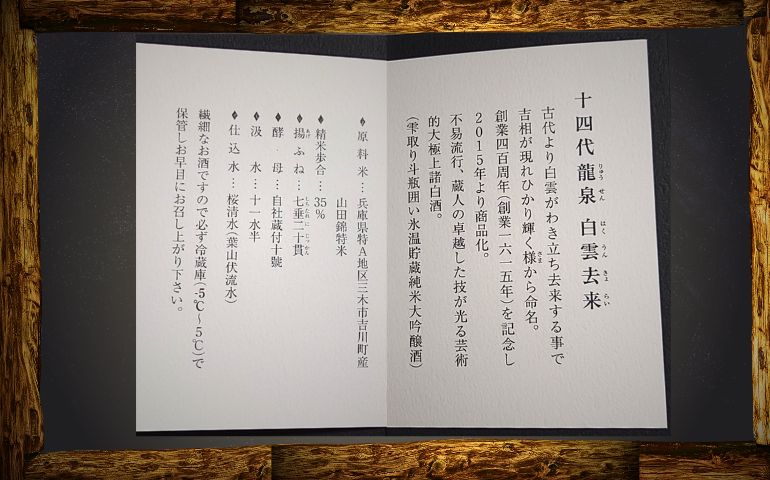 十四代龍泉 白雲去来
りゅう せん はく うん きょ らい
古代より白雲がわき立ち去来する事で
吉相が現れひかり輝く様から命名。
さま
創業四百周年(創業一六一五年)を記念し
2015年より商品化。
不易流行、蔵人の卓越した技が光る芸術
的大極上諸白酒。
(雫取り斗瓶囲い氷温貯蔵純米大吟醸酒)
◆原料米…兵庫県特A地区三木市吉川町産
山田錦特米
◆精米歩合…35%
◆揚ふね…七垂二十貫
あげ しちたれ にじっかん
◆酵母…自社蔵付十號
◆汲水…十一水半
◆仕込水…桜清水(葉山伏流水)
繊細なお酒ですので必ず冷蔵庫(-5℃～5℃)で
保管しお早目にお召し上がり下さい。